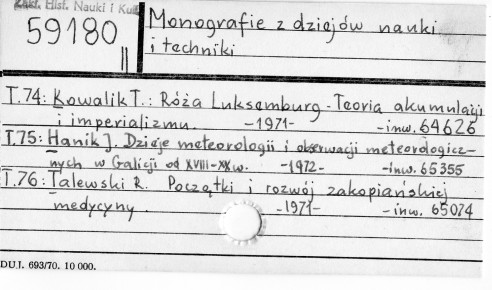 Zakł. Hist. Nauki i Kult.
59180
II
Monografie z dziejów nauki
i techniki
T.74: Kowalik T.: Róża Luksemburg - Teoria akumulacji
i imperializmu. -1971- -inw. 64626
T.75: Hanik J. Dzieje meteorologii i obserwacji meteorologicz-
nych w Galicji od XVIII-XX w. -1972- -inw. 65355
T.76: Talewski R. Początki i rozwój zakopiańskiej
medycyny. -1971- -inw. 65074
DUJ. 693/70. 10 000.